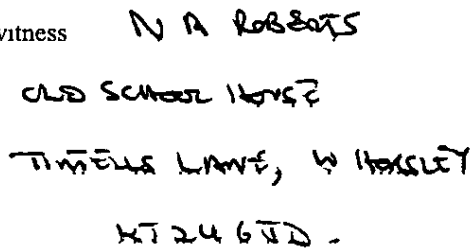 witness N A ROBERTS
OLD SCHOOL HOUSE
LANE, W HORSLEY
KT24 6JD.